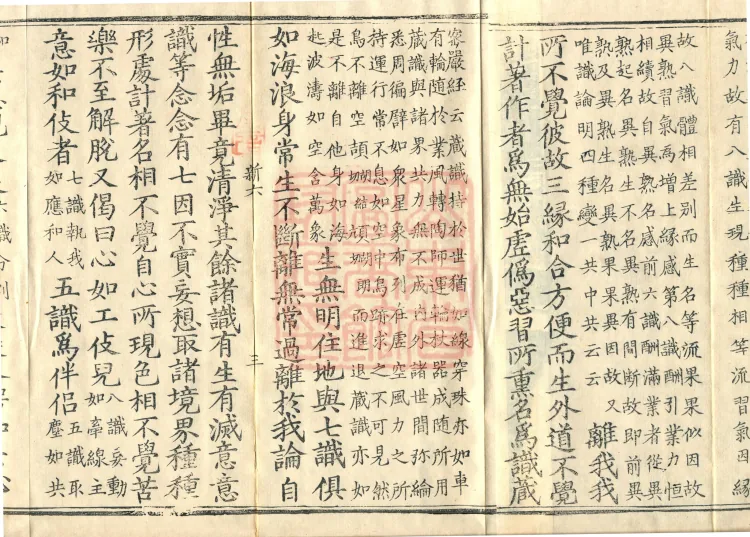 氣力故有八識生現種種相等流習氣因緣
故八識體相差別而生名等流果果似因故
異熟習氣為增上緣感第八識酬引業力恒
相續故自異熟名感前六識酬滿業者從異
熟起名異熟生不名異熟有間斷故即前異
熟及異熟生名異熟果果異因故又
唯識論明四種變一共中共云云
離我我
所不覺彼故三緣和合方便而生外道不覺
計著作者爲無始虛僞惡習所熏名爲識藏
密嚴經云藏識持於世猶如線穿珠亦如車
有輪隨於業風轉陶師運輪杖器成隨所用
藏識與諸界共力無不成內外諸世間弥綸
悉周徧譬如衆星象布列在虛空風力之所
持運行常不息如空中鳥跡求之不可見然
鳥不離空頡頏翔而進退藏識亦如
是不離自他身如海
起波濤如空含萬象
生無明住地與七識俱
如海浪身常生不斷離無常過離於我論自
新六
三
性無垢畢竟清淨其餘諸識有生有滅意意
識等念念有七因不實妄想取諸境界種種
形處計著名相不覺自心所現色相不覺苦
樂不至解脫又偈曰心如工伎兒八識妄動如牽線主
意如和伎者七識執我如應和人五識爲伴侶五識取塵如共